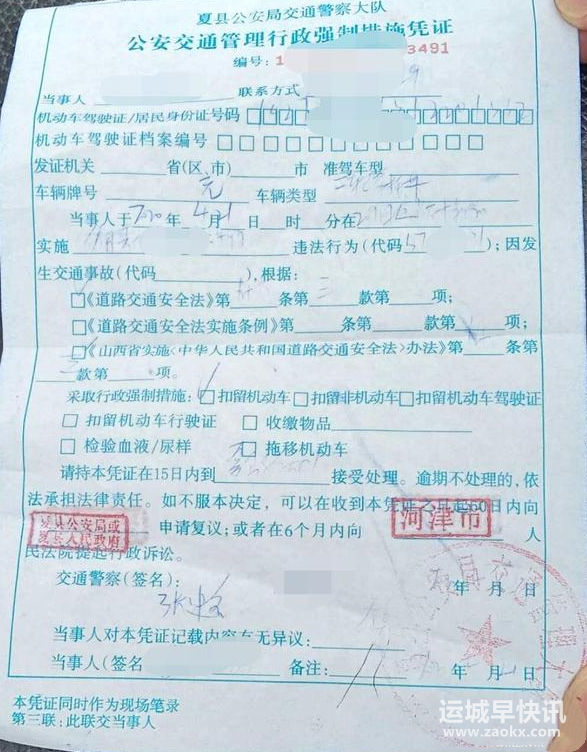 夏县公安局交通警察大队
公安交通管理行政强制措施凭证
编号:1 3491
当事人 联系方式
机动车驾驶证/居民身份证号码
机动车驾驶证档案编号
发证机关 省(区、市) 市 准驾车型
车辆牌号 无 车辆类型
当事人于 年 4 月 日 时 分在
实施 违法行为(代码 57 );因发
生交通事故(代码 ),根据:
□《道路交通安全法》第 条第 三 款第 项;
□《道路交通安全法实施条例》第 条第 款第 项;
□《山西省实施<中华人民共和国道路交通安全法>办法》第 条第
款第 项。
采取行政强制措施:□扣留机动车□扣留非机动车□扣留机动车驾驶证
□ 扣留机动车行驶证 □ 收缴物品
□ 检验血液/尿样 □ 拖移机动车
请持本凭证在15日内到 接受处理。逾期不处理的,依
法承担法律责任。如不服本决定,可以在收到本凭证之日起60日内向
夏县公安局或
夏县人民政府
申请复议;或者在6个月内向 河津市 人
民法院提起行政诉讼。
交通警察(签名): 年 月 日
当事人对本凭证记载内容有无异议:
当事人(签名 备注: 年 月 日
本凭证同时作为现场笔录
第三联:此联交当事人
运城早快讯
www.zaokx.com